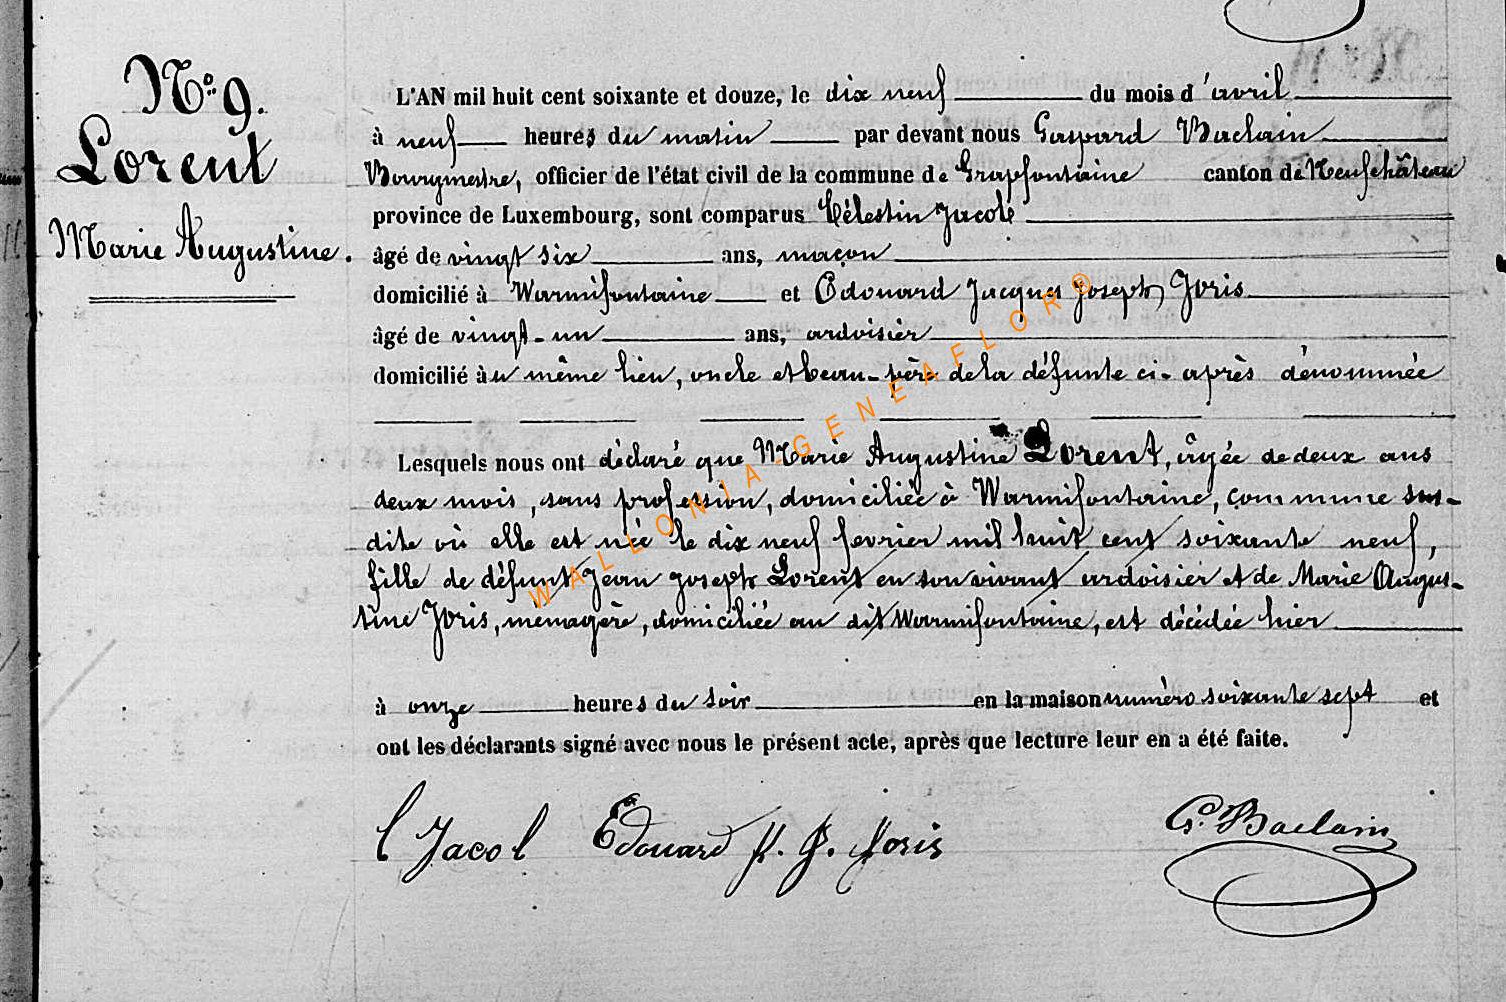 N° 9.
Lorent
Marie Augustine.
L'AN mil huit cent soixante et douze, le dix neuf du mois d'avril
à neuf heures du matin par devant nous Gaspard Baclain
Bourgmestre, officier de l'état civil de la commune de Grapfontaine canton de Neufchâteau
province de Luxembourg, sont comparus Célestin Jacob
âgé de vingt six ans, maçon
domicilié à Warmifontaine et Edouard Jacques Joseph Joris
âgé de vingt-un ans, ardoisier
domicilié au même lieu, oncle et beau-père de la défunte ci-après dénommée
Lesquels nous ont déclaré que Marie Augustine Lorent, âgée de deux ans
deux mois, sans profession, domiciliée à Warmifontaine, commune sus-
dite où elle est née le dix neuf fevrier mil huit cent soixante neuf,
fille de défunt Jean Joseph Lorent en son vivant ardoisier et de Marie Augus-
tine Joris, ménagère, domiciliée au dit Warmifontaine, est décédée hier
à onze heures du soir en la maison numéro soixante sept et
ont les déclarants signé avec nous le présent acte, après que lecture leur en a été faite.
C Jacob Edouard J. J. Joris G. Baclain
WALLONIA-GENEAFLOR®